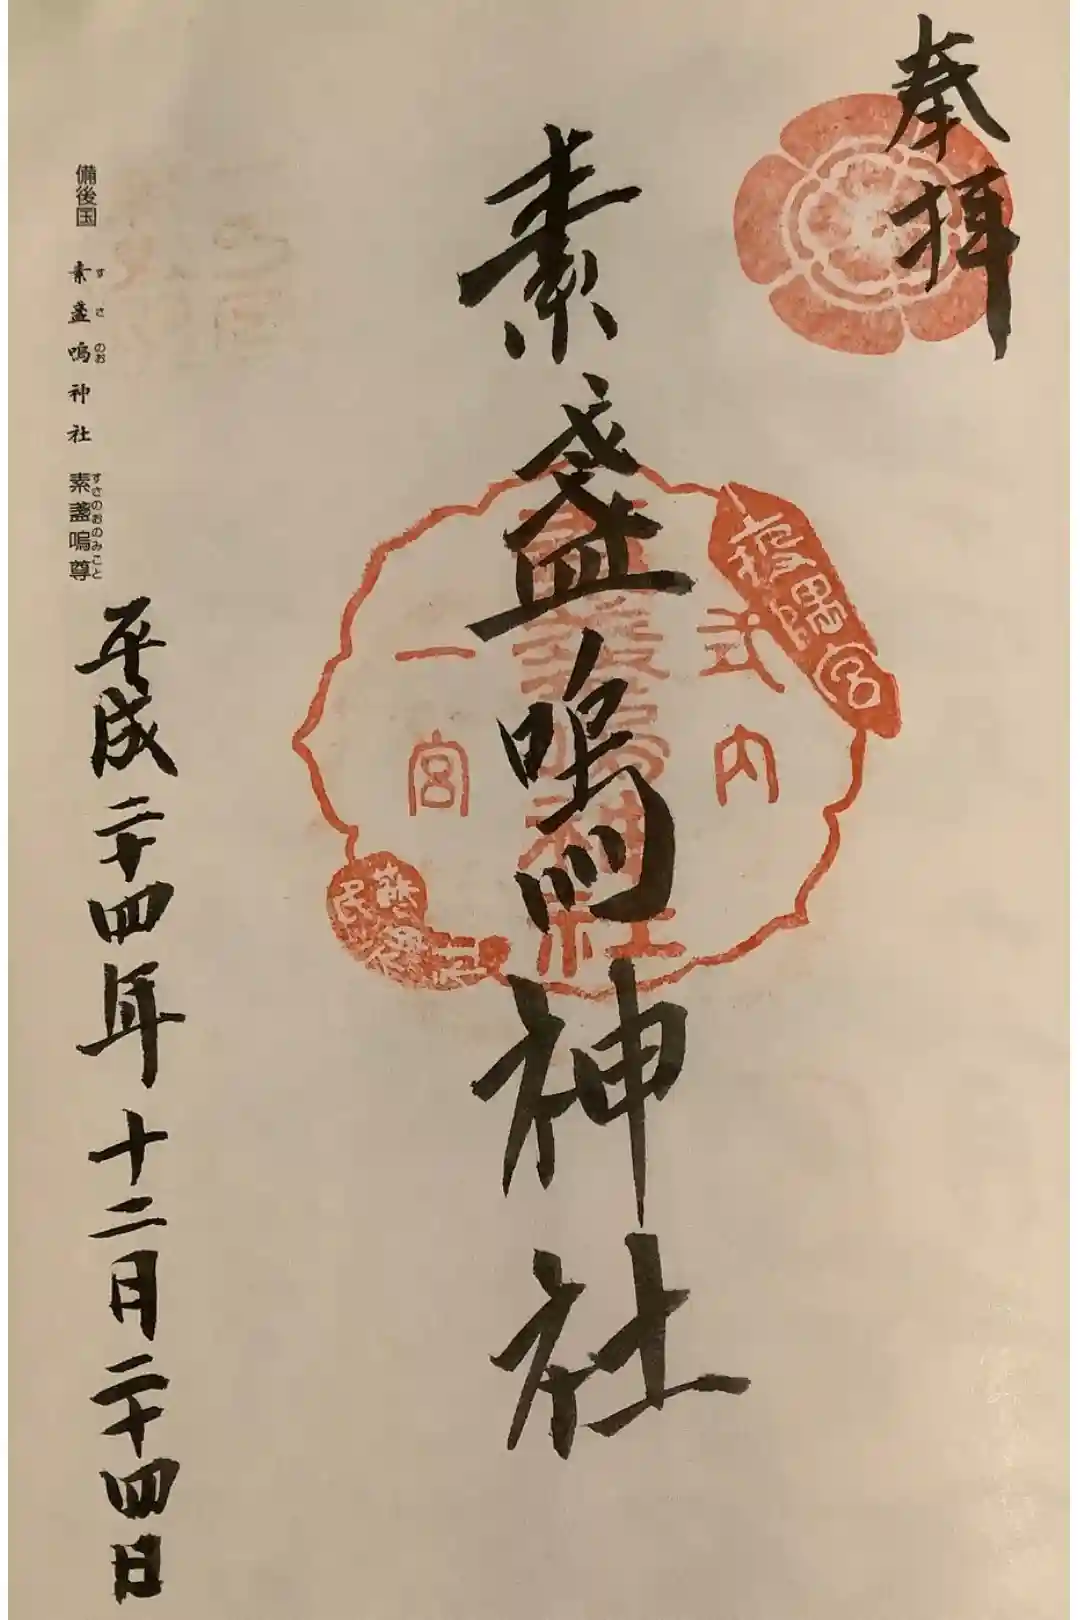 奉拝
素盞嗚神社
式内
疫隅宮
素盞嗚神社
一宮
備後国 素盞嗚神社 素盞嗚尊
す さ のお すさのおのみこと
平成二十四年十二月二十四日